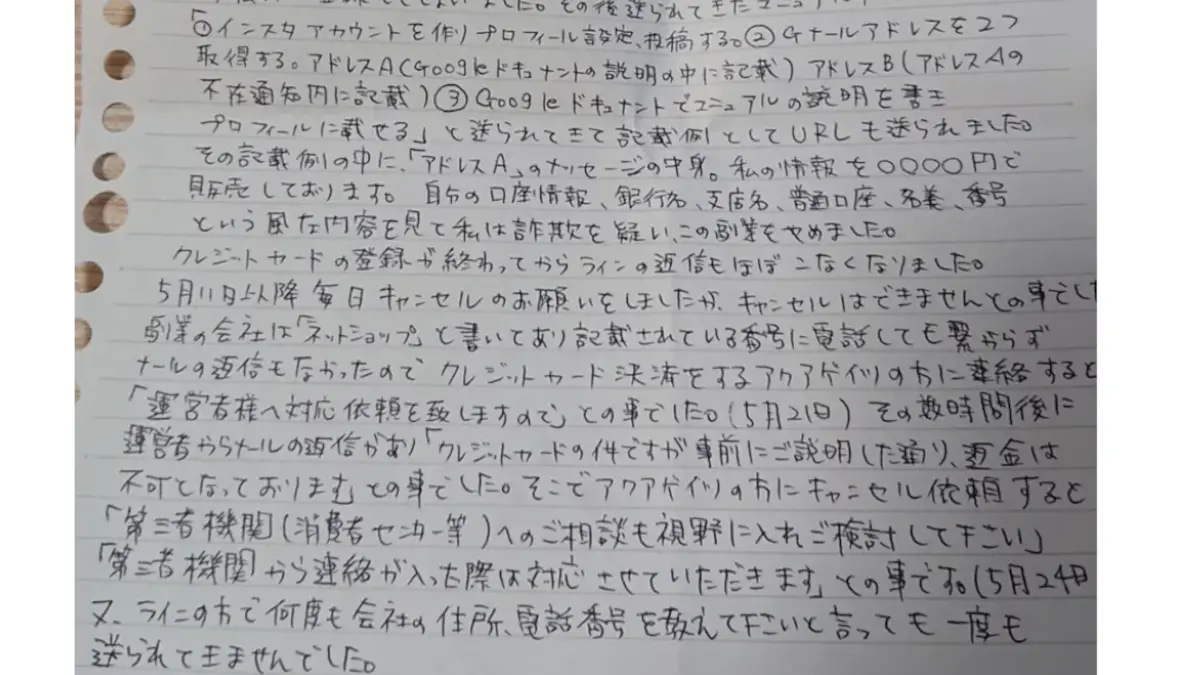 その後送られてきたマニュアルに
「①インスタアカウントを作りプロフィール設定、投稿する。②Gメールアドレスを2つ
取得する。アドレスA(Googleドキュメントの説明の中に記載)アドレスB(アドレスAの
不在通知内に記載)③Googleドキュメントでマニュアルの説明を書き
プロフィールに載せる」と送られてきて記載例としてURLも送られました。
その記載例の中に、「アドレスA」のメッセージの中身。私の情報を〇〇〇〇円で
販売しております。自分の口座情報、銀行名、支店名、普通口座、名義、番号
という風な内容を見て私は詐欺を疑い、この副業をやめました。
クレジットカードの登録が終わってからラインの返信もほぼこなくなりました。
5月11日以降毎日キャンセルのお願いをしましたが、キャンセルはできませんとの事でし
副業の会社は「ネットショップ」と書いてあり記載されている番号に電話しても繋がらず
メールの返信もなかったのでクレジットカード決済をするアクアゲイツの方に連絡すると
「運営者様へ対応依頼を致しますので」との事でした。(5月21日)その数時間後に
運営者からメールの返信があり「クレジットカードの件ですが事前にご説明した通り、返金は
不可となっております」との事でした。そこでアクアゲイツの方にキャンセル依頼すると
「第三者機関(消費者センター等)へのご相談も視野に入れご検討して下さい」
「第三者機関から連絡が入った際は対応させていただきます」との事です。(5月24日
又、ラインの方で何度も会社の住所、電話番号を教えて下さいと言っても一度も
送られてきませんでした。